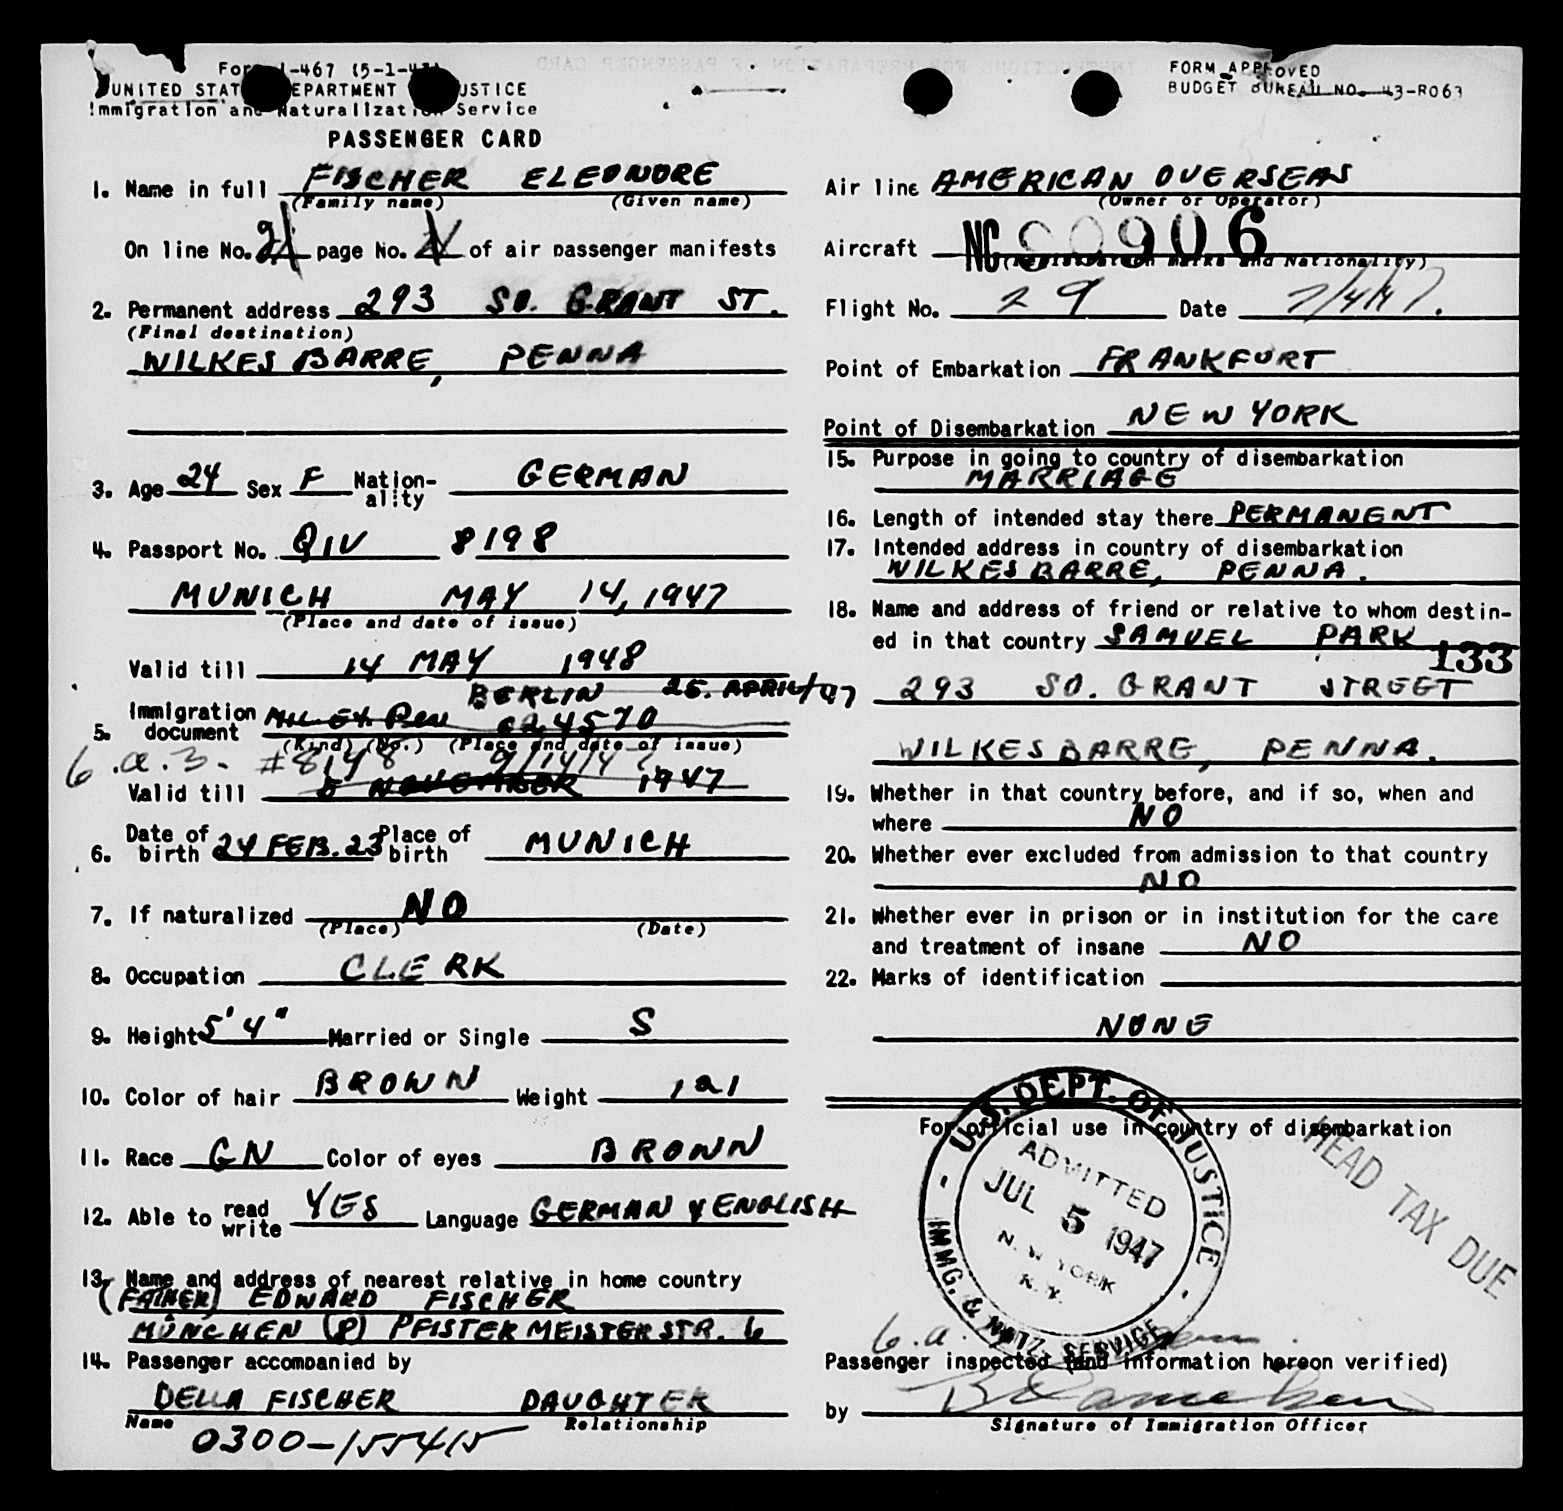 Form I-467 (5-1-43)
UNITED STATES DEPARTMENT OF JUSTICE
Immigration and Naturalization Service
PASSENGER CARD
FORM APPROVED
BUDGET BUREAU NO. 43-R063
1. Name in full FISCHER ELEONORE
(Family name) (Given name)
On line No. page No. of air passenger manifests
2. Permanent address 293 SO. GRANT ST.
(Final destination)
WILKES BARRE, PENNA
3. Age 24 Sex F Nation-ality GERMAN
4. Passport No. QIV 8198
MUNICH MAY 14, 1947
(Place and date of issue)
Valid till 14 MAY 1948
BERLIN 25. APRIL/47
5. Immigration document MIL EX Per 024570
(Kind) (No.) (Place and date of issue)
6.a.3. #8198 9/14/47
Valid till 5 NOVEMBER 1947
6. Date of birth 24 FEB. 23 Place of birth MUNICH
7. If naturalized NO
(Place) (Date)
8. Occupation CLERK
9. Height 5'4" Married or Single S
10. Color of hair BROWN Weight 121
11. Race GN Color of eyes BROWN
12. Able to read write YES Language GERMAN & ENGLISH
13. Name and address of nearest relative in home country
(FATHER) EDWARD FISCHER
MÜNCHEN (8) PFISTERMEISTERSTR. 6
14. Passenger accompanied by
DELLA FISCHER DAUGHTER
Name Relationship
0300-155415
Air line AMERICAN OVERSEAS
(Owner or Operator)
Aircraft NC 90906
(Registration marks and Nationality)
Flight No. 29 Date 7/4/47.
Point of Embarkation FRANKFURT
Point of Disembarkation NEW YORK
15. Purpose in going to country of disembarkation
MARRIAGE
16. Length of intended stay there PERMANENT
17. Intended address in country of disembarkation
WILKES BARRE, PENNA.
18. Name and address of friend or relative to whom destin-
ed in that country SAMUEL PARK
133
293 SO. GRANT STREET
WILKES BARRE, PENNA.
19. Whether in that country before, and if so, when and
where NO
20. Whether ever excluded from admission to that country
NO
21. Whether ever in prison or in institution for the care
and treatment of insane NO
22. Marks of identification
NONE
For official use in country of disembarkation
U.S. DEPT. OF JUSTICE
ADMITTED
JUL 5 1947
NEW YORK
N.Y.
IMMG. & NATZ. SERVICE
HEAD TAX DUE
6.a.
Passenger inspected (and information hereon verified)
by
Signature of Immigration Officer